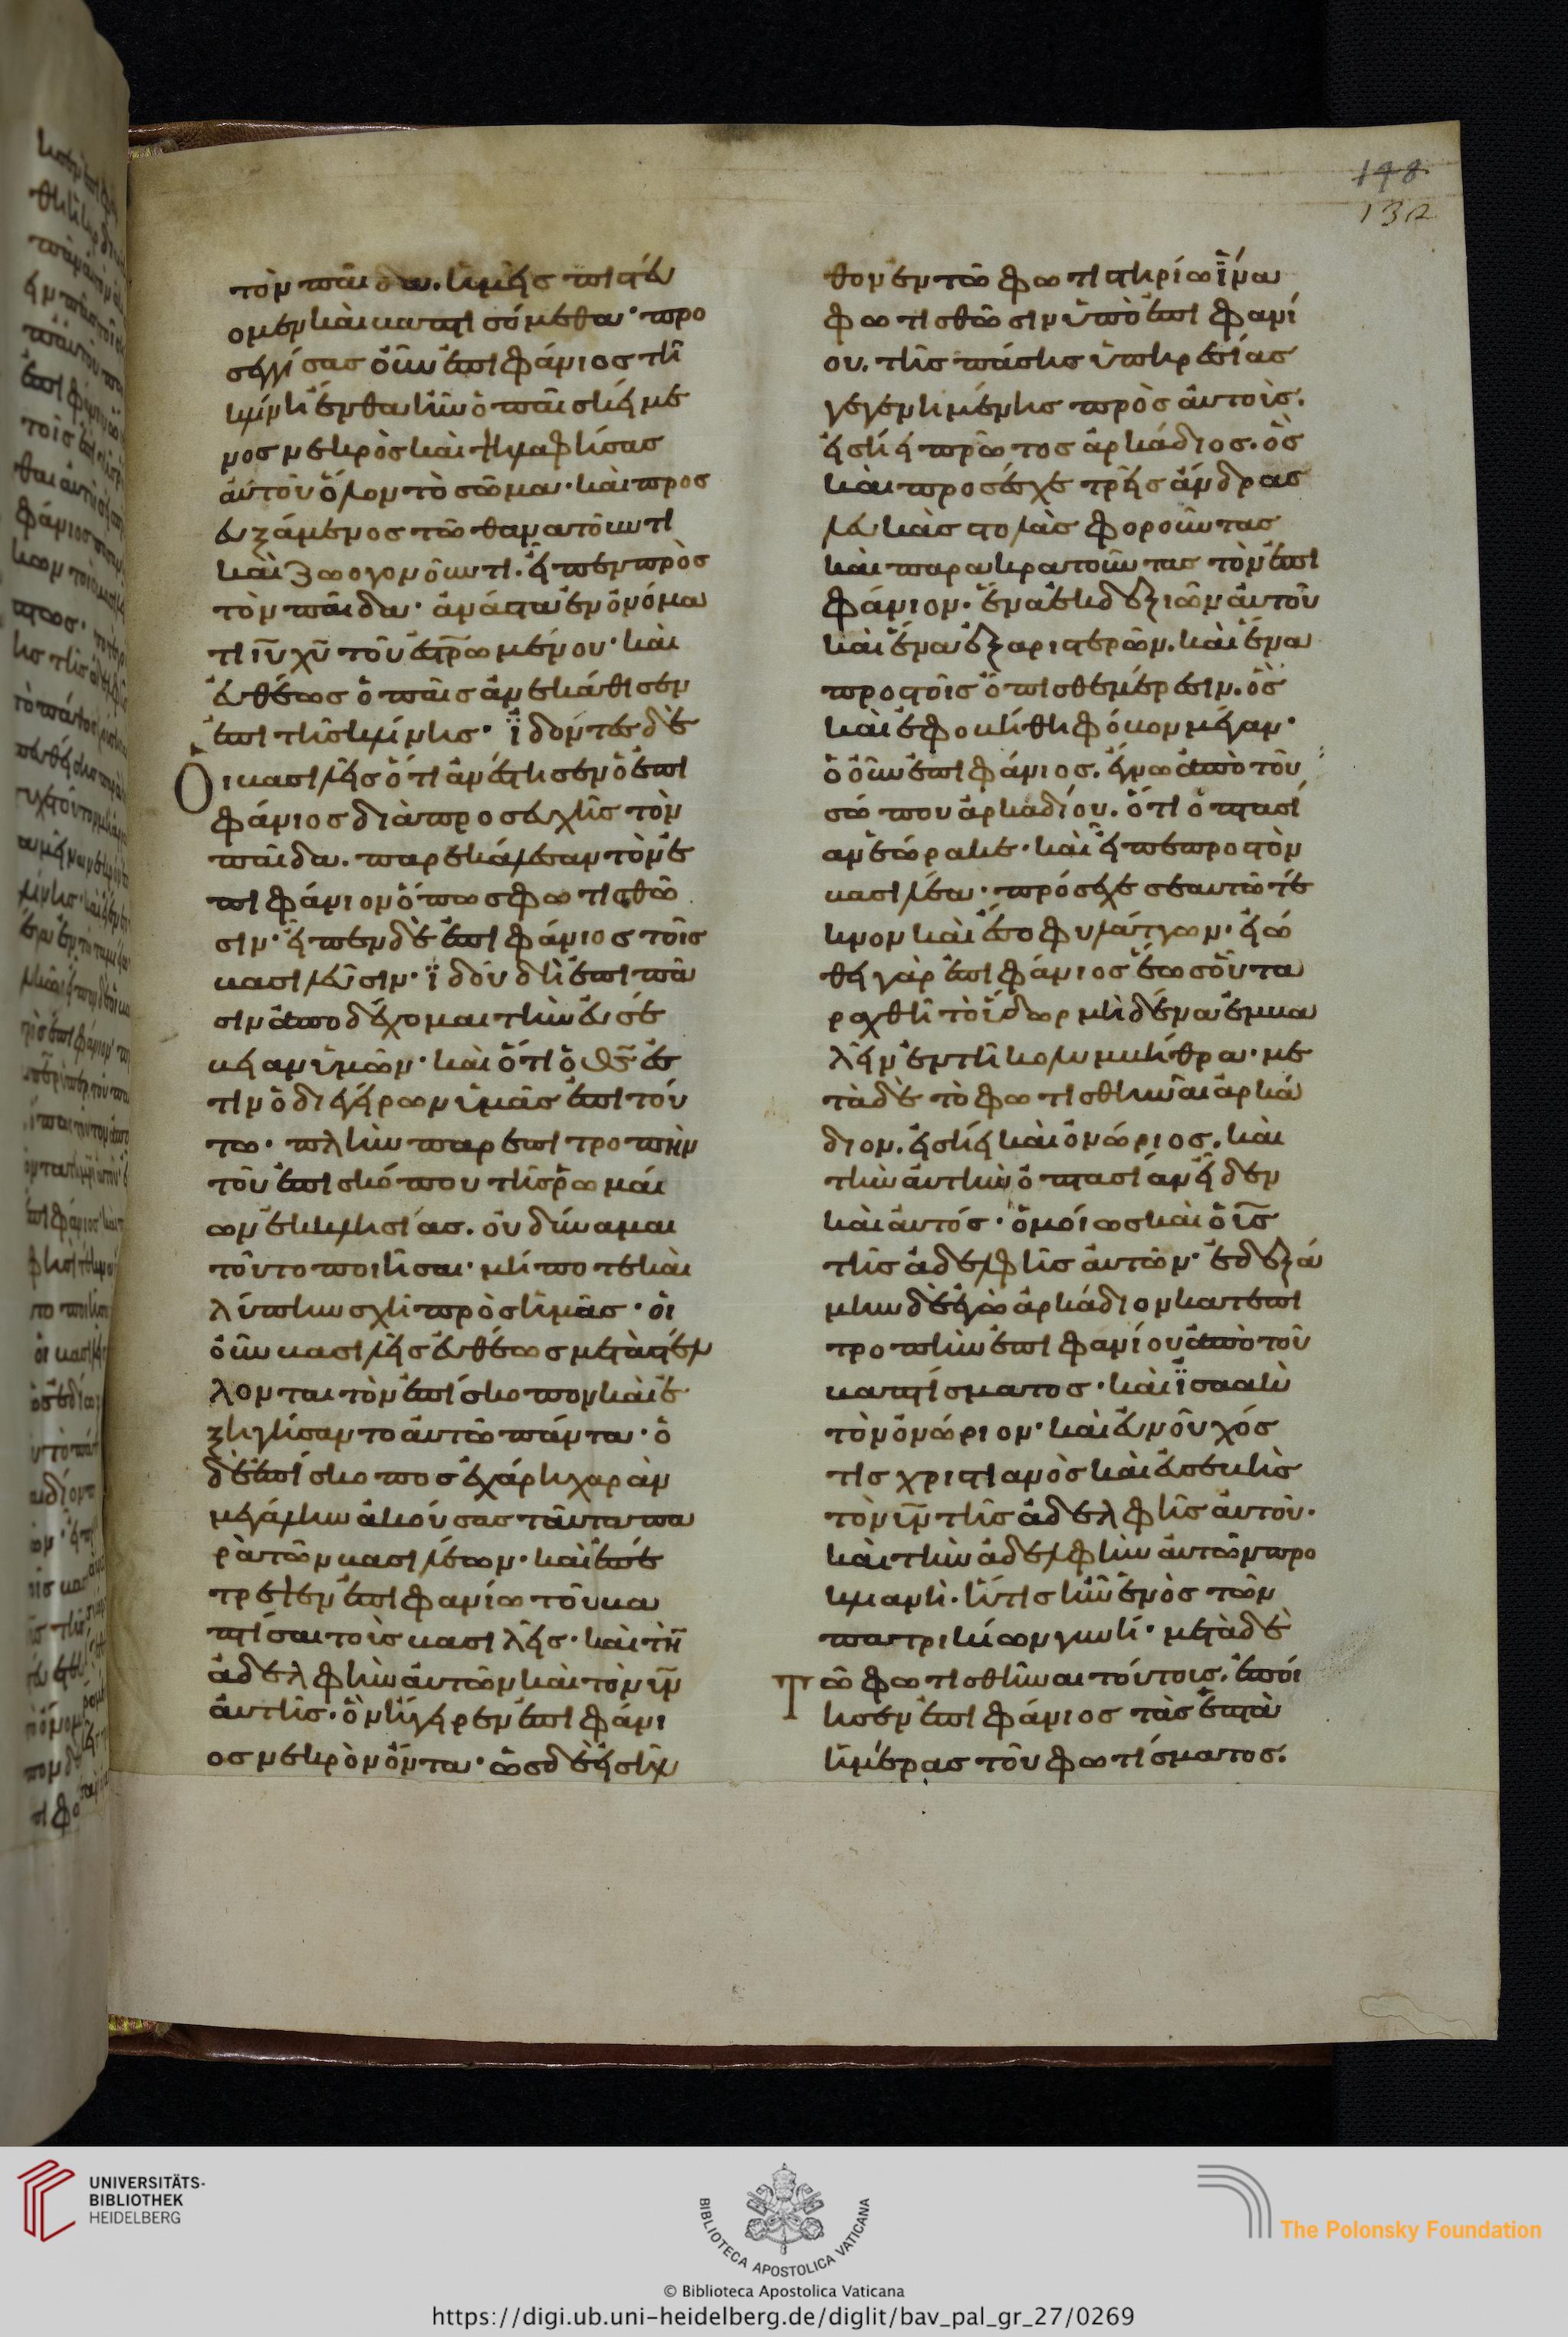 148
132
τὸν παῖδα. ἡμεῖς πιστεύ
ομεν καὶ βαπτισόμεθα· προ
σεγγίσας οὖν ἐπιφάνιος τῆ
κλίνη ἔνθα ἦν ὁ παῖς κείμε
νος νεκρὸς καὶ ψιλαφήσας
αὐτοῦ ὅλον τὸ σῶμα· καὶ προσ
ευξάμενος τῶ θανατοῦντι
καὶ ζωογονοῦντι. εἶπεν πρὸς
τὸν παῖδα· ἀνάστα ἐν ὀνόμα
τι ιυ χυ τοῦ ἐστρωμένου· καὶ
εὐθέως ὁ παῖς ἀνεκάθισεν
ἐπὶ τῆς κλίνης· ἰδόντες δὲ
Οἱ βασιλεῖς ὅτι ἀνέστησεν ὁ ἐπι
φάνιος διὰ προσευχῆς τὸν
παῖδα. παρεκάλεσαν τὸν ἐ
πιφάνιον ὅπως φωτισθῶ
σιν· εἶπεν δὲ ἐπιφάνιος τοῖς
βασιλεῦσιν· ἰδοὺ δὴ ἐπὶ πᾶ
σιν ἀποδέχομαι τὴν εὐσέ
βειαν ὑμῶν· καὶ ὅτι ὁ θς ἐσ
τιν ὁ διεγείρων ὑμᾶς ἐπὶ τού
τω· πλὴν παρεπιτροπὴν
τοῦ ἐπισκόπου τῆς ῥωμαί
ων ἐκκλησίας. οὐ δύναμαι
τοῦτο ποιῆσαι· μήποτε καὶ
λύπην σχῆ πρὸς ἡμᾶς· οἱ
οὖν βασιλεῖς εὐθέως μεταστέλ
λονται τὸν ἐπίσκοπον καὶ ἐ
ξηγήσαντο αὐτῶ πάντα· ὁ
δὲ ἐπίσκοπος ἐχάρη χαρὰν
μεγάλην ἀκούσας ταῦτα πα
ρὰ τῶν βασιλέων· καὶ ἐπέ
τρεψεν ἐπιφανίω τοῦ βα
πτίσαι τοὺς βασιλεῖς· καὶ τὴν
ἀδελφὴν αὐτῶν καὶ τὸν υν
αὐτῆς· ὃν ἤγειρεν ἐπιφάνι
ος νεκρὸν ὄντα· ὡς δὲ εἰσῆλ
θον ἐν τῶ φωτιστηρίω ἵνα
φωτισθῶσιν ὑπὸ ἐπιφανί
ου. τῆς πάσης ὑπηρεσίας
γεγενημένης πρὸς αὐτοὺς.
εἰσήει πρῶτος ἀρκάδιος. ὃς
καὶ προσέσχε τρεῖς ἄνδρας
λευκὰς στολὰς φοροῦντας
καὶ παρακρατοῦντας τὸν ἐπι
φάνιον· ἕνα ἐκ δεξιῶν αὐτοῦ
καὶ ἕνα ἐξ ἀριστερῶν. καὶ ἕνα
προς τοῖς ὄπισθεν μέρεσιν. ὃς
καὶ ἐφοβήθη φόβον μέγαν·
ὁ οὖν ἐπιφάνιος. εἴνω ἀπὸ τοῦ
σώπου ἀρκαδίου. ὅτι ὀπτασί
αν ἑώρακε· καὶ εἶπε προς τὸν
βασιλέα· πρόσεχε σεαυτῶ τέ
κνον καὶ ἔσο φυλάττων· εἰώ
θει γὰρ ἐπιφάνιος ἕως οὗ τα
ραχθῆ τὸ ὕδωρ μὴ δένα ἐμβα
λεῖν ἐν τῆ κολυμβήθρα· με
τὰ δὲ τὸ φωτισθῆναι ἀρκά
διον. εἰσήει καὶ ὀνώριος. καὶ
τὴν αὐτὴν ὀπτασίαν εἶδεν
καὶ αὐτός· ὁμοίως καὶ ὁ υς
τῆς ἀδελφῆς αὐτῶν· ἐδεξά
μην δὲ ἐγὼ ἀρκάδιον κατεπι
τροπὴν ἐπιφανίου ἀπὸ τοῦ
βαπτίσματος· καὶ ἰσαὰκ
τὸν ὀνώριον· καὶ εὐνοῦχός
τις χριστιανὸς καὶ εὐσεβὴς
τὸν υν τῆς ἀδελφῆς αὐτοῦ.
καὶ τὴν ἀδελφὴν αὐτῶν προ
κλιανὴ. ἥτις ἦν ἑνὸς τῶν
πατρικίων γυνή· μετὰ δὲ
Τῶ φωτισθῆναι τούτοις. ἐποί
ησεν ἐπιφάνιος τὰς ἑπτὰ
ἡμέρας τοῦ φωτίσματος.
UNIVERSITÄTS-
BIBLIOTHEK
HEIDELBERG
BIBLIOTECA APOSTOLICA VATICANA
The Polonsky Foundation
© Biblioteca Apostolica Vaticana
https://digi.ub.uni-heidelberg.de/diglit/bav_pal_gr_27/0269